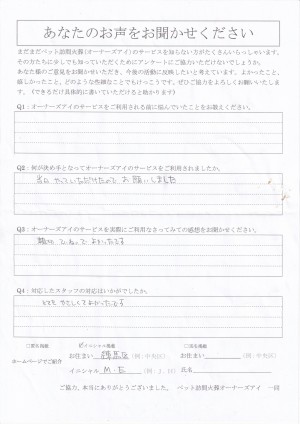 あなたのお声をお聞かせください
まだまだペット訪問火葬(オーナーズアイ)のサービスを知らない方がたくさんいらっしゃいます。
その方たちに少しでも知っていただくためにご協力いただけないでしょうか。
あなた様のご意見をお聞かせいただき、今後の活動に反映したいと考えています。よかったこと、
嬉しかったこと、どのような些細なことでもけっこうです。ぜひご協力をよろしくお願いいたします。
(できるだけ具体的に書いていただけると助かります)
Q1:オーナーズアイのサービスをご利用される前に悩んでいたことをお教えください。
Q2:何が決め手となってオーナーズアイのサービスをご利用されましたか。
やっていただけたので お願いしました
Q3:オーナーズアイのサービスを実際にご利用なさってみての感想をお聞かせください。
よかったです
Q4:対応したスタッフの対応はいかがでしたか。
とてもやさしくてよかったです
□匿名掲載
イニシャル掲載
□実名掲載
ホームページでご紹介
お住まい 練馬区 (例:中央区)
お住まい (例:中央区)
イニシャル M・E (例:J.H)
氏名
ご協力、本当にありがとうございました。 ペット訪問火葬オーナーズアイ 一同